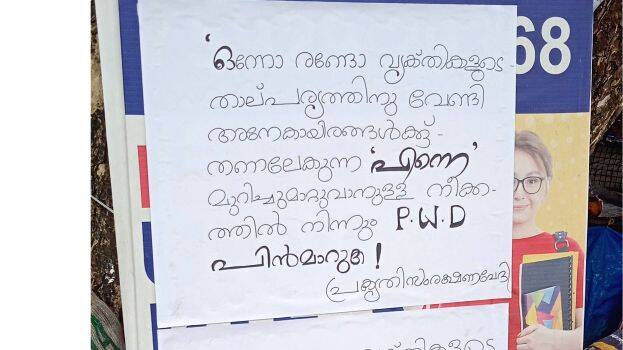 68
'ഒന്നോ രണ്ടോ വ്യക്തികളുടെ
താല്പര്യത്തിനു വേണ്ടി
അനേകായിരങ്ങൾക്ക് -
തണലേകുന്ന 'പുന്ന'
മുറിച്ചുമാറ്റുവാനുള്ള നീക്ക-
ത്തിൽ നിന്നും P.W.D
പിൻമാറുക!
(പ്രകൃതിസംരക്ഷണവേദി)